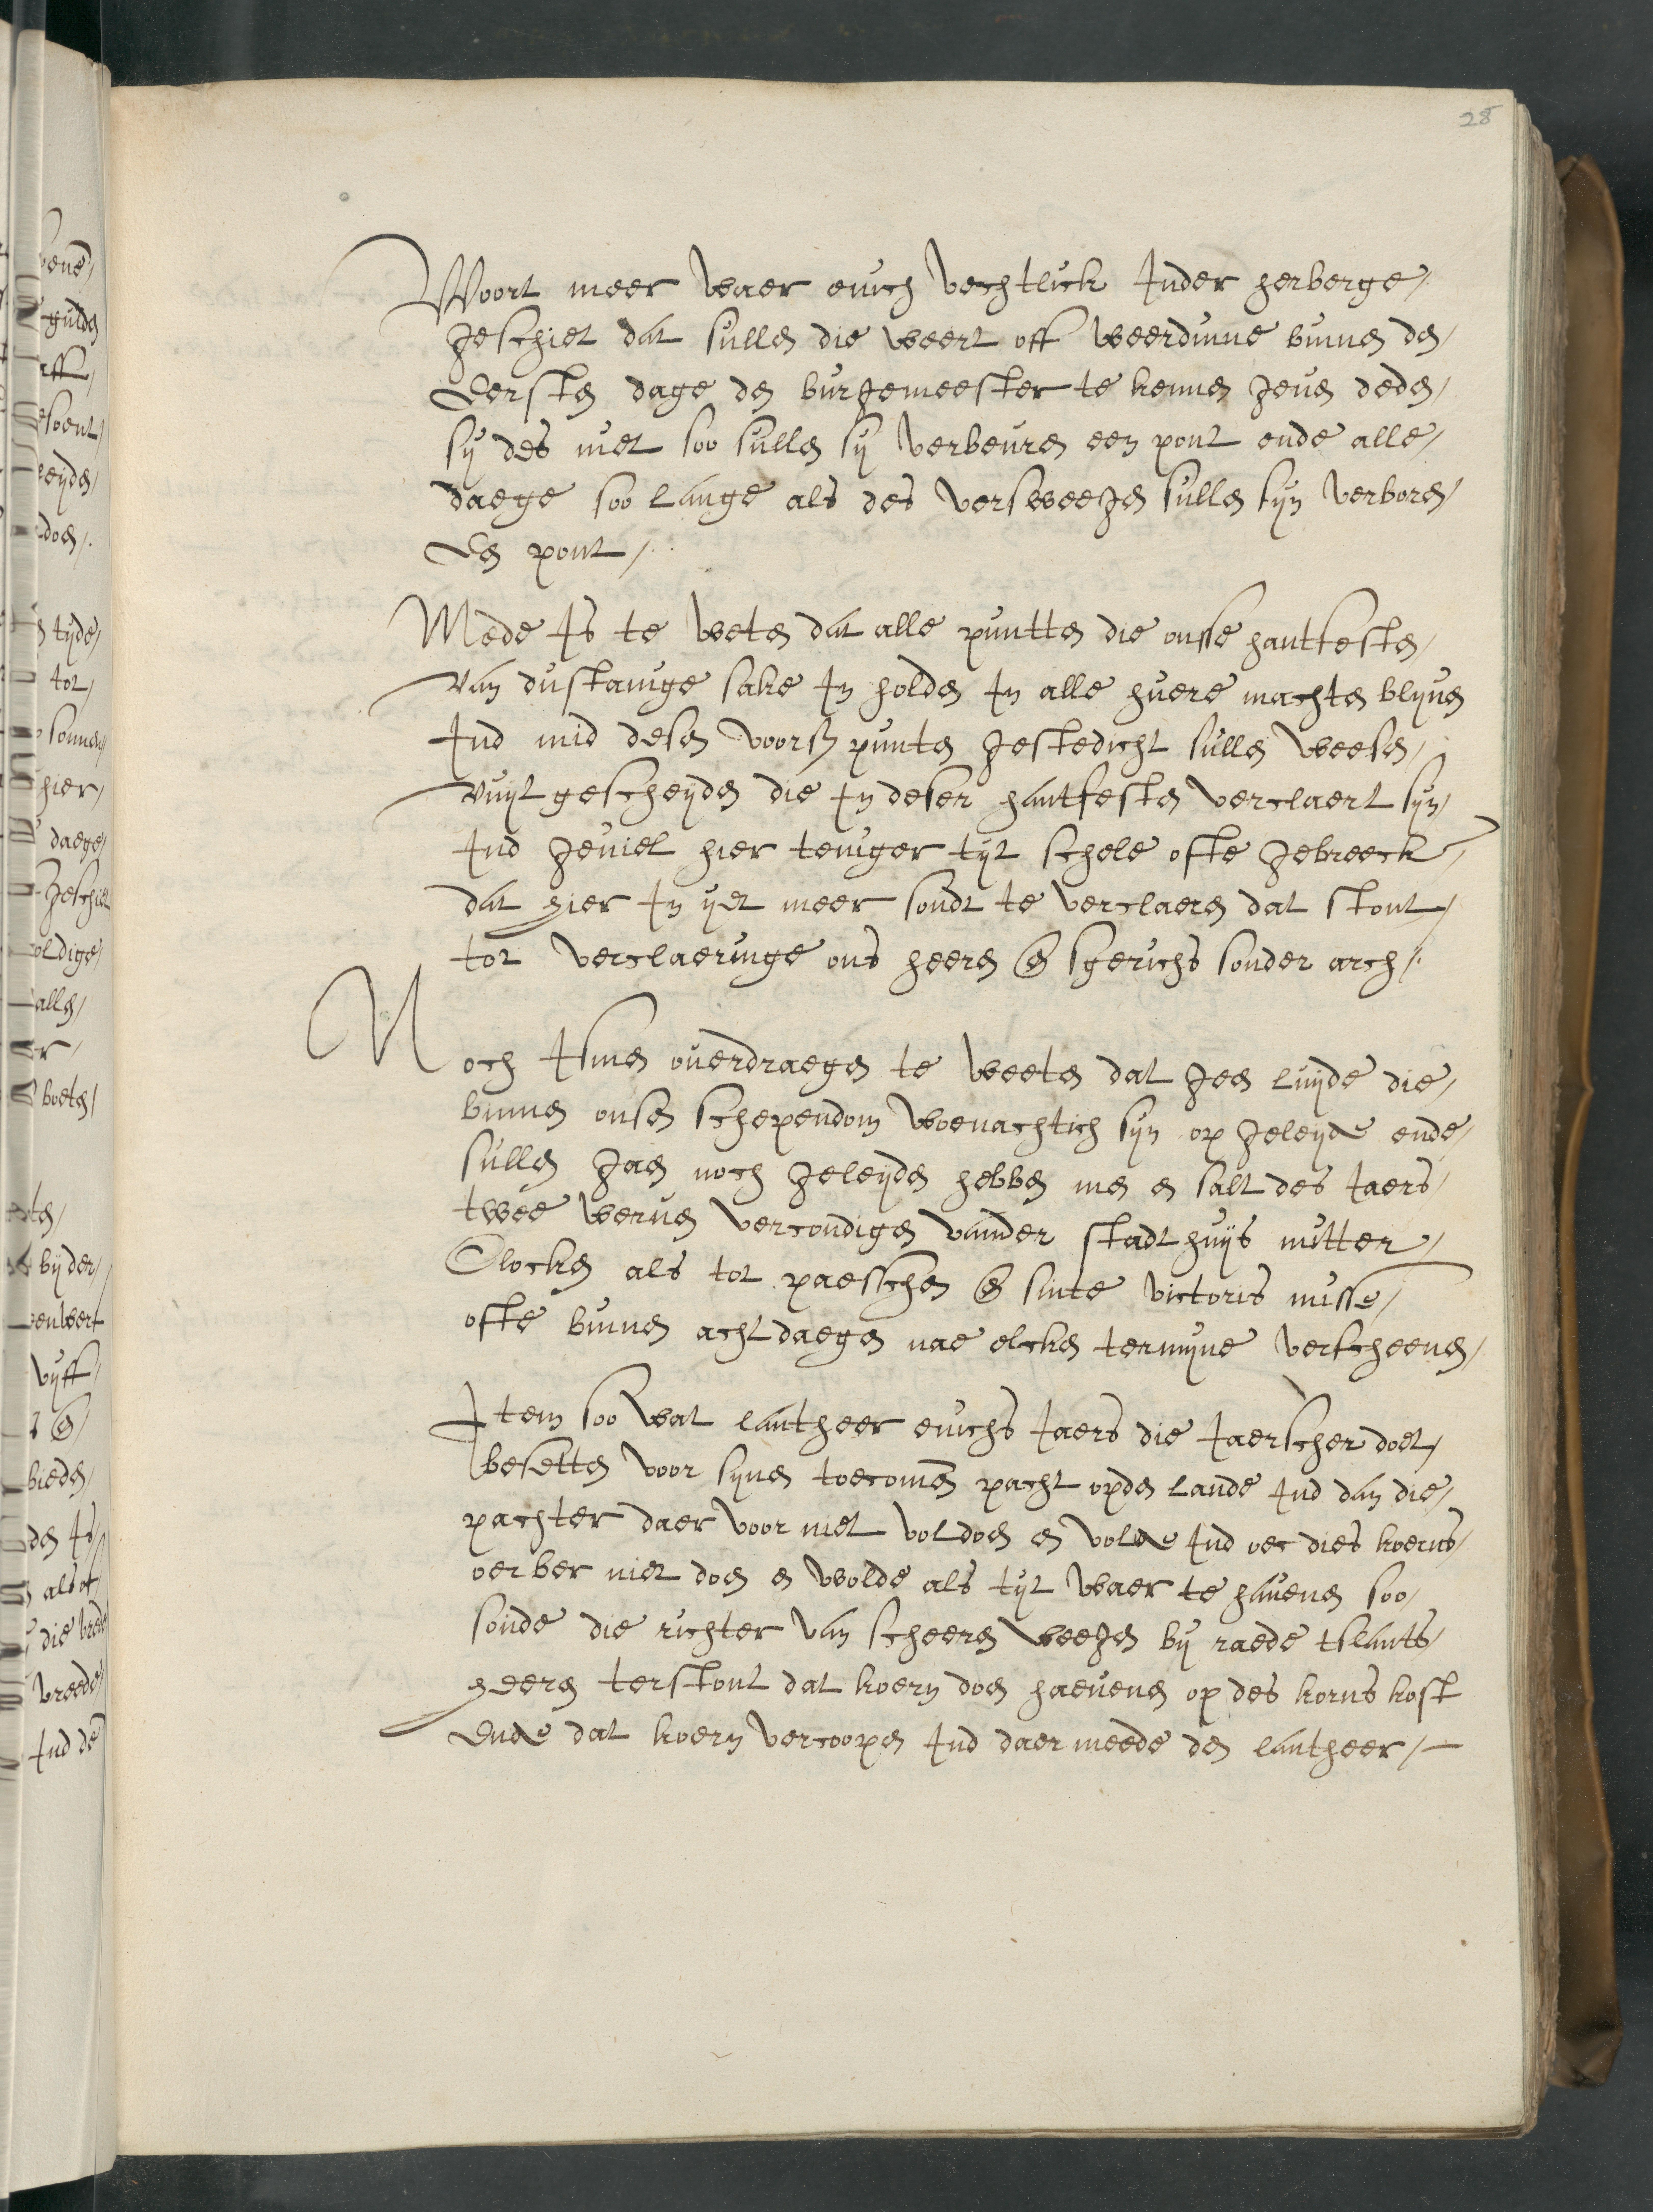 28
Woort meer waer enich vechtlick Inder herberge,
geschiet dat sullen die weert off weerdinne binnen den,
Eersten dage den burgemeester te kennen geven deden,
sy des niet soo sullen sy verbeuren een pont ende alle,
daege soo lange als des versweegen sullen sijn verboren,
En pont,
Mede Is te weten dat alle puntten die onsse hantfesten,
van dustanige sake In holden In alle huere machten blijven
Ind mid desen voors punten gestedicht sullen weesen,
vuijtgescheijden die In deser hantfesten verclaert sijn,
Ind geviel hier teniger tijt schele ofte gebreeck,
dat hier In ijet meer soudt te verclaeren dat stont,
tot verclaeringe ons heeren en sgerichs sonder arch.
Noch Ismen overdraegen te weeten dat geen luijde die,
binnen onsen schependom woenachtich sijn op geleijde ende,
sullen gaen noch geleijden hebben men en salt des Jaers,
twee werven vercondigen vander stadthuijs mitter,
Clocken als tot paesschen en sinte victoris misse,
ofte binnen acht daegen nae elcken termijne verscheenen,
Item soo wat lantheer enichs Jaers die Jaerscher doet,
besetten voor sijnen toecomen pacht opden lande Ind dan die,
pachter daer voor niet voldoen en wolde Ind oec dies koerns,
oerber niet doen en wolde als tijt waer te havenen soo,
soude die richter van scheeren weegen bij raede tslants,
heeren terstont dat koern doen haevenen op des korns kost
Ende dat koern vercoopen Ind daer meede den lantheer,